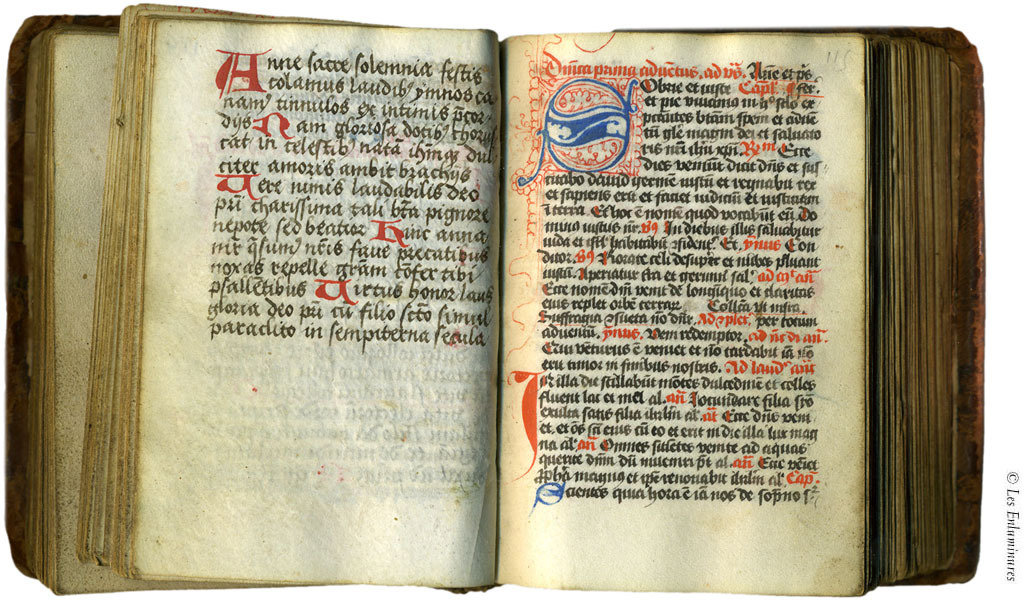 Anne sacre solemnia festis
colamus laudib ymnos ca
nam tinnulos ex intimis pcor
dijs Nam gloriosa dotib thorus
cat in celestib natā ihmq dul
citer amoris ambit brachijs
Vere nimis laudabilis deo
pri charissima tali bta pignore
nepote sed beatior Hinc anna
nr qsum nris faue precatibus
noxas repelle gram cōfer tibi
psallētibus Virtus honor laus
gloria deo pri cū filio scto simul
paraclito in sempiterna secula
115
Dnica prima aduētus ad vs Ane et ps
Sobrie et iuste Capl fer
et pie viuamus in
expectātes btam spem et aduē
tū gle magni dei et saluato
ris nri ihu xpi Rm Ecce
dies veniūt dicit dns et sus
citabo dauid germē iustū et regnabit rex
et sapiens erit et faciet iudiciū et iusticiam
ī terra Et hoc ē nomē quod vocabūt eū Do
minus iustus nr vs In diebus illis saluabitur
iuda et isrl habitabit 9fident Et ymnus Con
ditor vs Rorate celi desuper et nubes pluant
iustū Aperiatur tra et germi sal ad an
Ecce nomē dni venit de longīquo et claritas
eius replet orbē terrar Collcta vt infra
Suffragia 9sueta nō dnr Ad 9plet per totum
aduentū ymnus Veni redemptor ad nc di an
Ecce vēturus ē veniet et nō tardabit iā nō
erit timor in finibus nostris Ad laud an
In illa die stillabūt mōtes dulcedinē et colles
fluent lac et mel al an Iocundare filia syō
exulta satis filia ihrlm al an Ecce dns veni
et et oēs sci eius cū eo et erit in die illa lux mag
na al an Omnes sitiētes venite ad aquas
querite dnm dū inueniri pt al an Ecce veniet
ppha magnus et ipe renouabit ihrlm al Cap
Scientes quia hora ē iā nos de sopno
© Les Enluminures